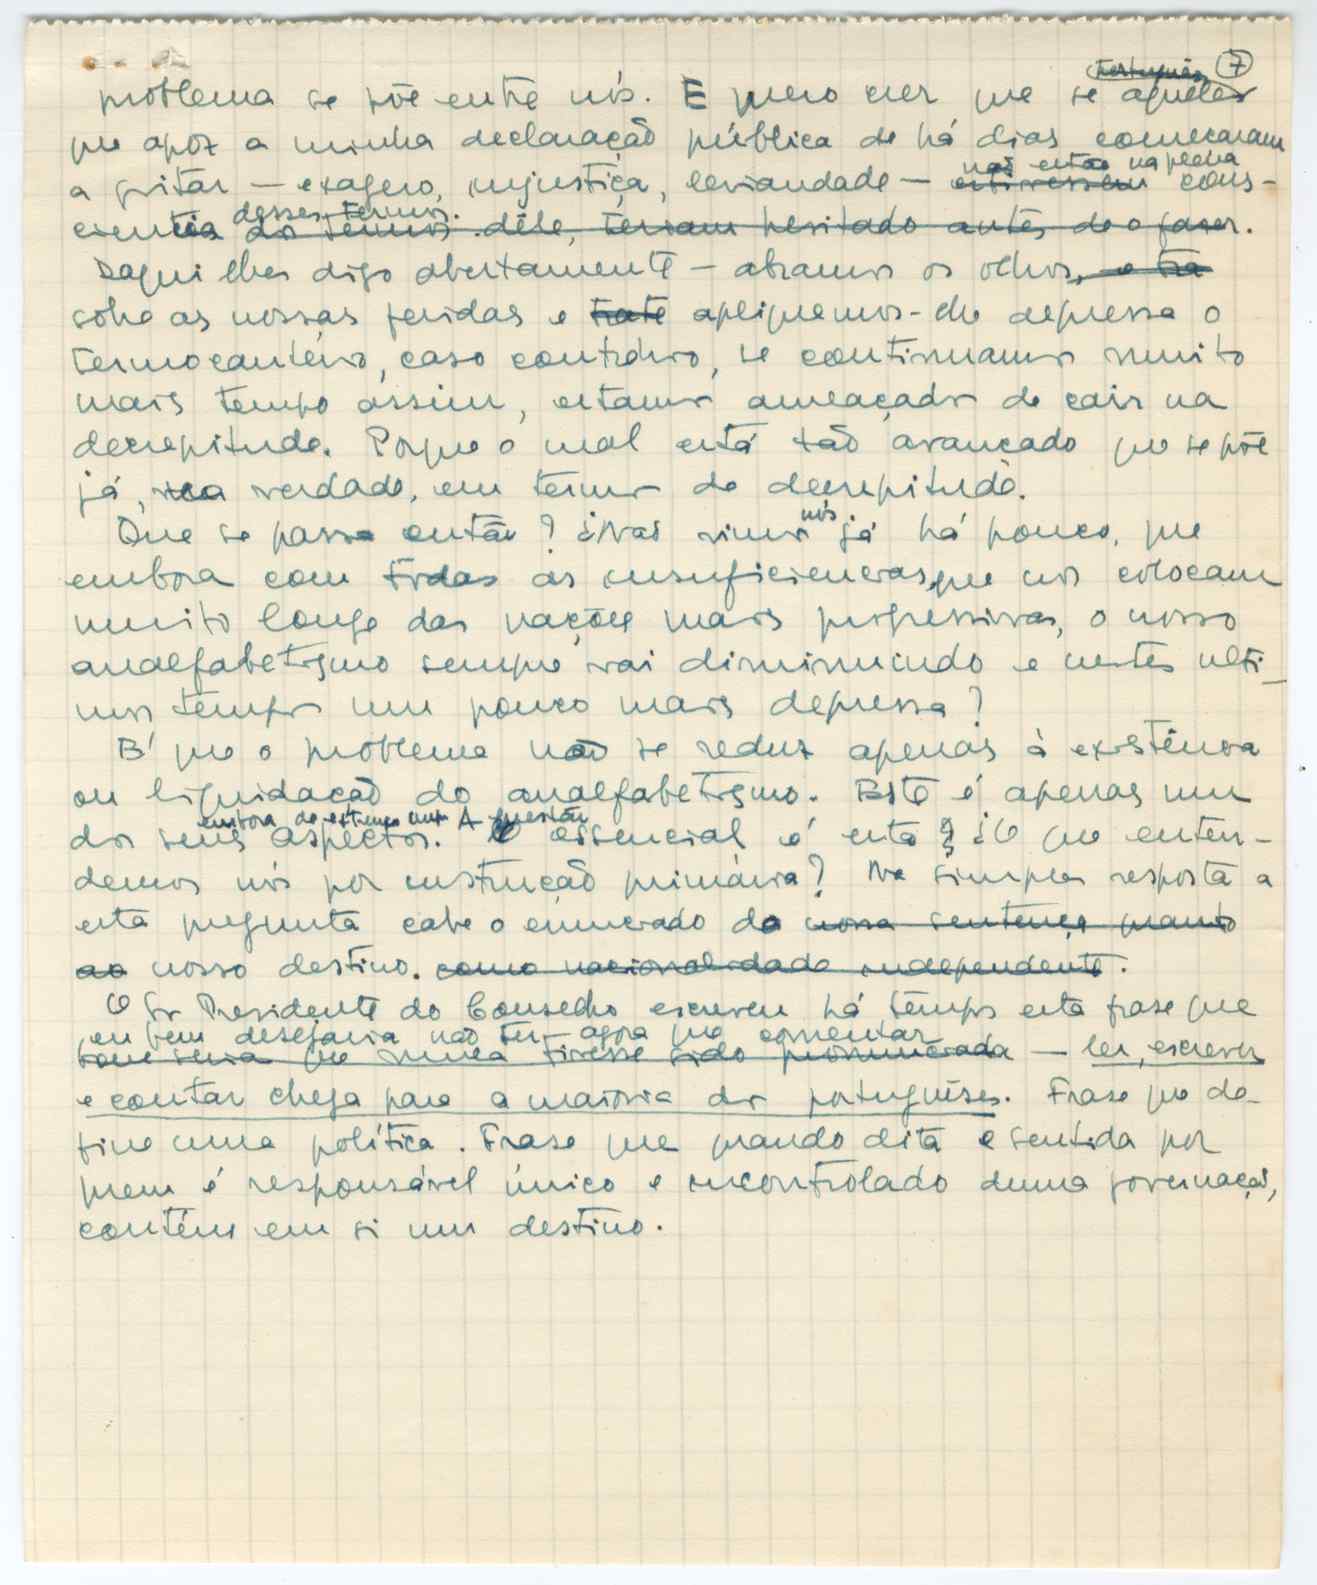 7
problema se põe entre nós. E quero crer que se aqueles
que apoz a minha declaração pública de há dias começaram
a gritar — exagero, injustiça, leviandade — não estão na plena cons-
ciencia desses termos. dêle, teriam hesitado antes de o fazer.
Daqui lhes digo abertamente — abramos os olhos, e tra
sobre as nossas feridas e trate apliquemos-lhe depressa o
termocautério, caso contrário, se continuamos muito
mais tempo assim, estamos ameaçados de cair na
decrepitude. Porque o mal está tão avançado que se põe
já, na verdade, em termos de decrepitude.
Que se passa então? ¿Não vimos nós já há pouco, que
embora com todas as insuficiencias, que nos colocam
muito longe das nações mais progressivas, o nosso
analfabetismo sempre vai diminuindo e nestes ulti-
mos tempos um pouco mais depressa?
É que o problema não se reduz apenas à existência
ou liquidação do analfabetismo. Este é apenas um
embora de extrema A questão
dos seus aspectos. essencial é esta: ¿O que enten-
demos nós por instrução primária? Na simples resposta a
esta pergunta cabe o enunciado do nossa sentença quanto
ao nosso destino. como nacionalidade independente.
O Sr Presidente do Conselho escreveu há tempos esta frase que
eu bem desejaria não ter agora que comentar
bom seria que nunca tivesse sido pronunciada — ler, escrever
e contar chega para a maioria dos portugueses. Frase que de-
fine uma política. Frase que quando dita e sentida por
quem é responsável único e incontrolado duma governação,
contém em si um destino.